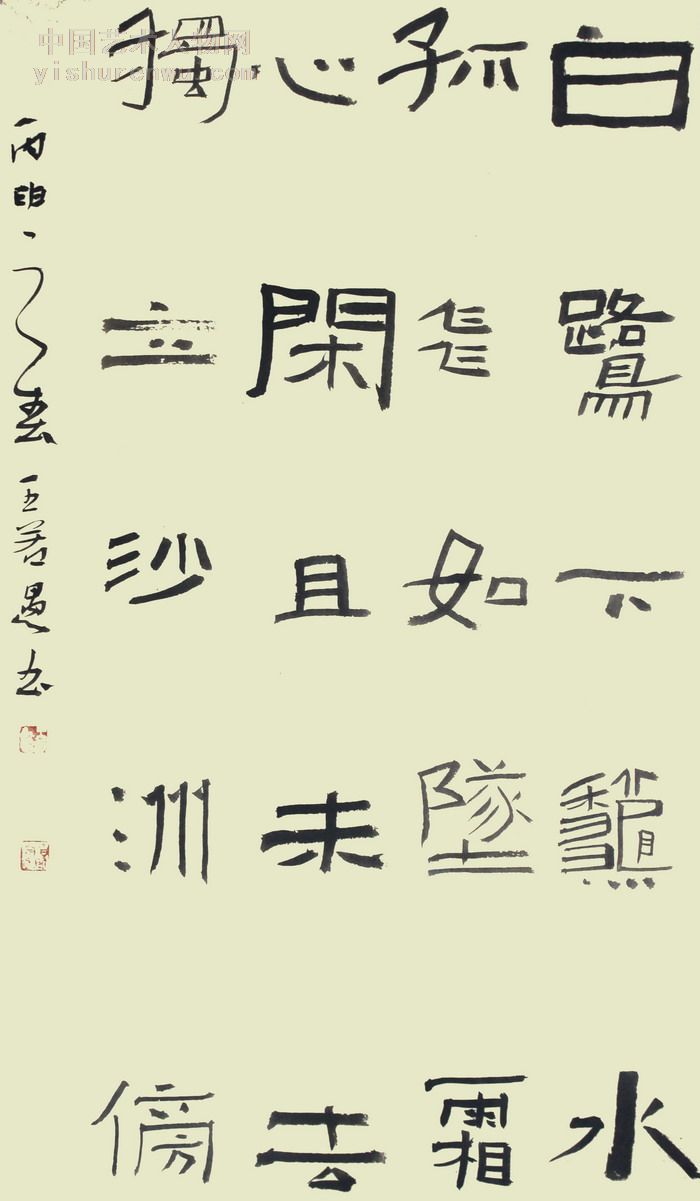 中国艺术人物网
yishurenwu.com
白鷺下龝水
孤飛如墜霜
心閑且未去
獨立沙洲傍
丙申之春王若愚书